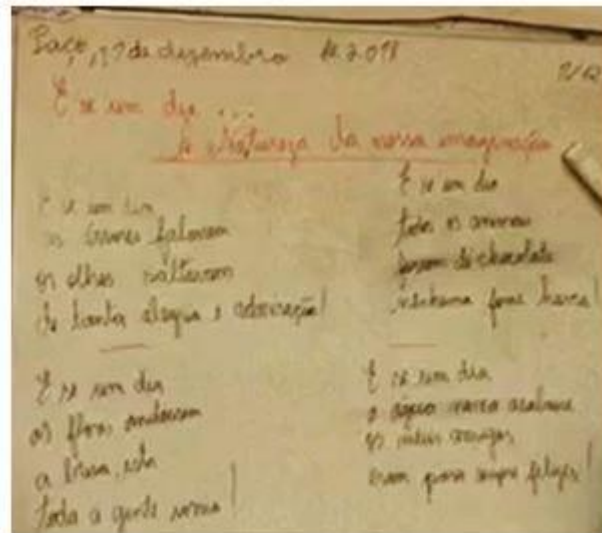 Paço, 17 de dezembro de 2018
E se um dia ...
A Natureza da nossa imaginação
E se um dia
as árvores falassem
os olhos saltassem
de tanta alegria e admiração!
E se um dia
as flores andassem
a
toda a gente
E se um dia
todos os animais
fossem de chocolate
nenhuma fosse
E se um dia
a água nunca acabasse
os meus amigos
eram para sempre felizes!